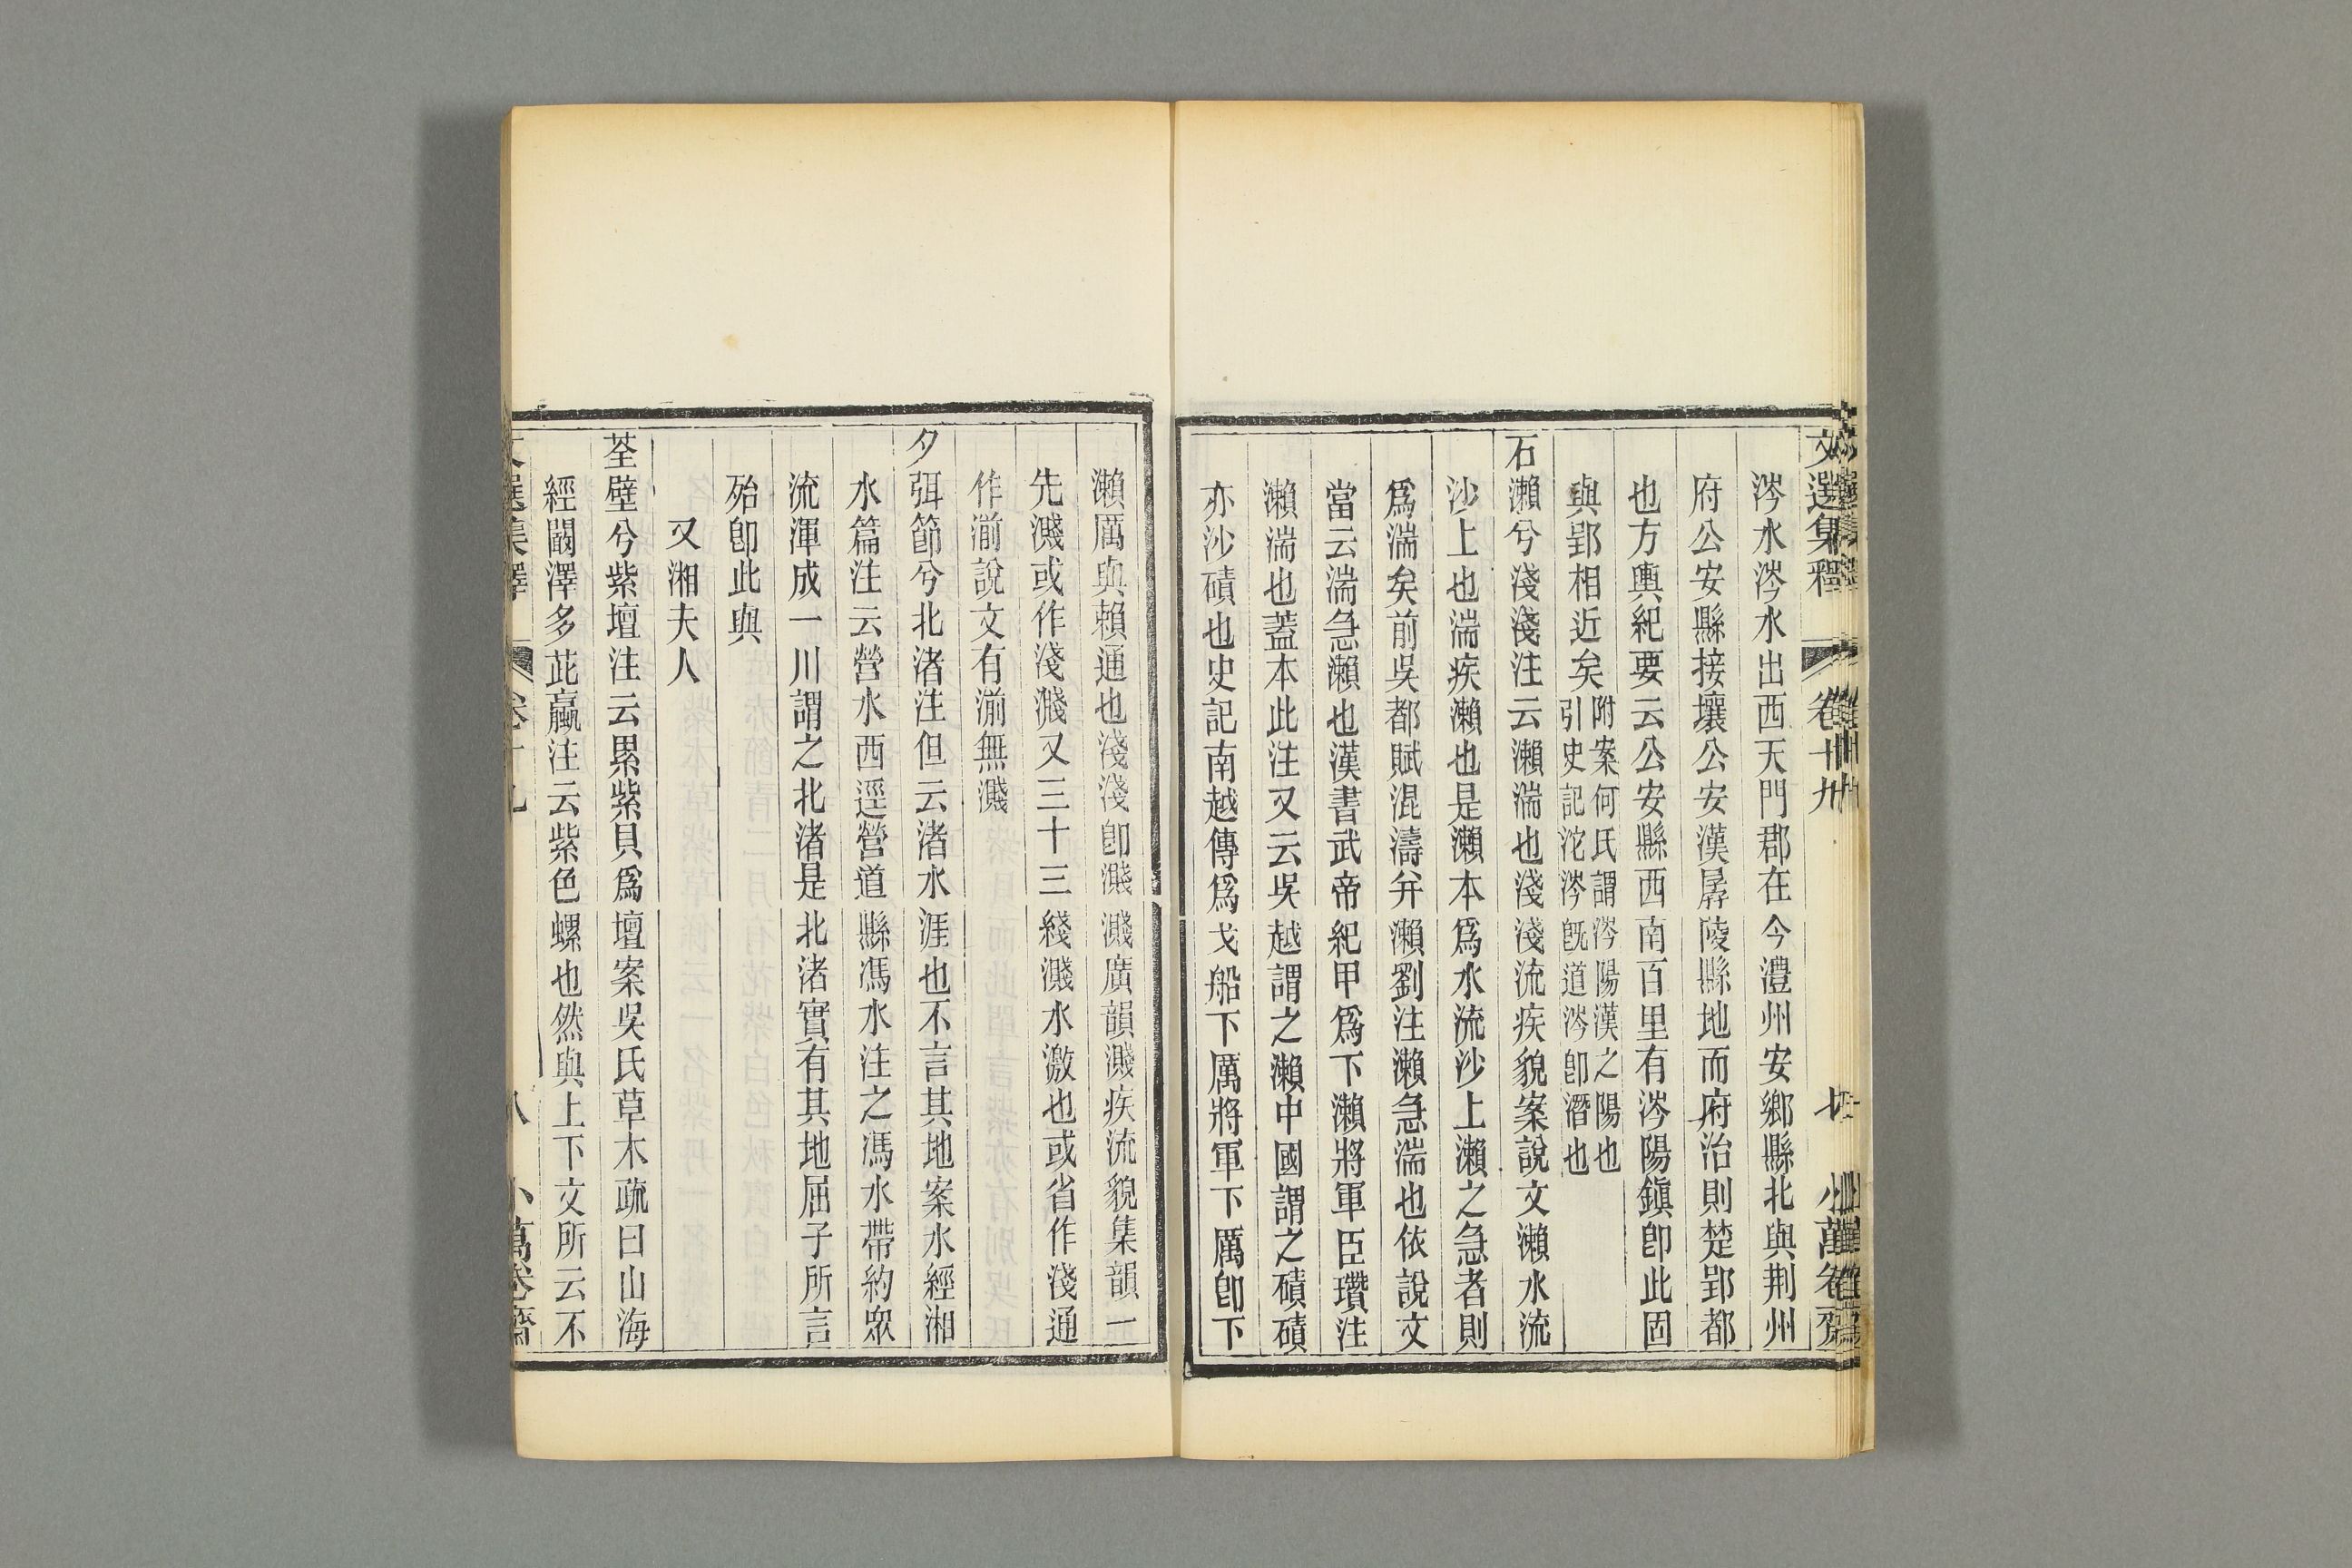 文選集釋　卷十九　七　小萬卷齋
涔水涔水出西天門郡在今澧州安鄉縣北與荆州
府公安縣接壤公安漢孱陵縣地而府治則楚郢都
也方輿紀要云公安縣西南百里有涔陽鎮卽此固
與郢相近矣附案何氏謂涔陽漢之陽也
引史記沱涔旣道涔卽潛也
石瀨兮淺淺注云瀨湍也淺淺流疾貌案說文瀨水流
沙上也湍疾瀨也是瀨本爲水流沙上瀨之急者則
爲湍矣前吳都賦混濤幷瀨劉注瀨急湍也依說文
當云湍急瀨也漢書武帝紀甲爲下瀨將軍臣瓚注
瀨湍也蓋本此注又云吳越謂之瀨中國謂之磧磧
亦沙磧也史記南越傳爲戈船下厲將軍下厲卽下
瀨厲與賴通也淺淺卽濺濺廣韻濺疾流貌集韻一
先濺或作淺濺又三十三綫濺水激也或省作淺通
作湔說文有湔無濺
夕弭節兮北渚注但云渚水涯也不言其地案水經湘
水篇注云營水西逕營道縣馮水注之馮水帶約眾
流渾成一川謂之北渚是北渚實有其地屈子所言
殆卽此與
又湘夫人
荃壁兮紫壇注云累紫貝爲壇案吳氏草木疏曰山海
經閼澤多茈蠃注云紫色螺也然與上下文所云不
文選集釋　卷十九　八　小萬卷齋